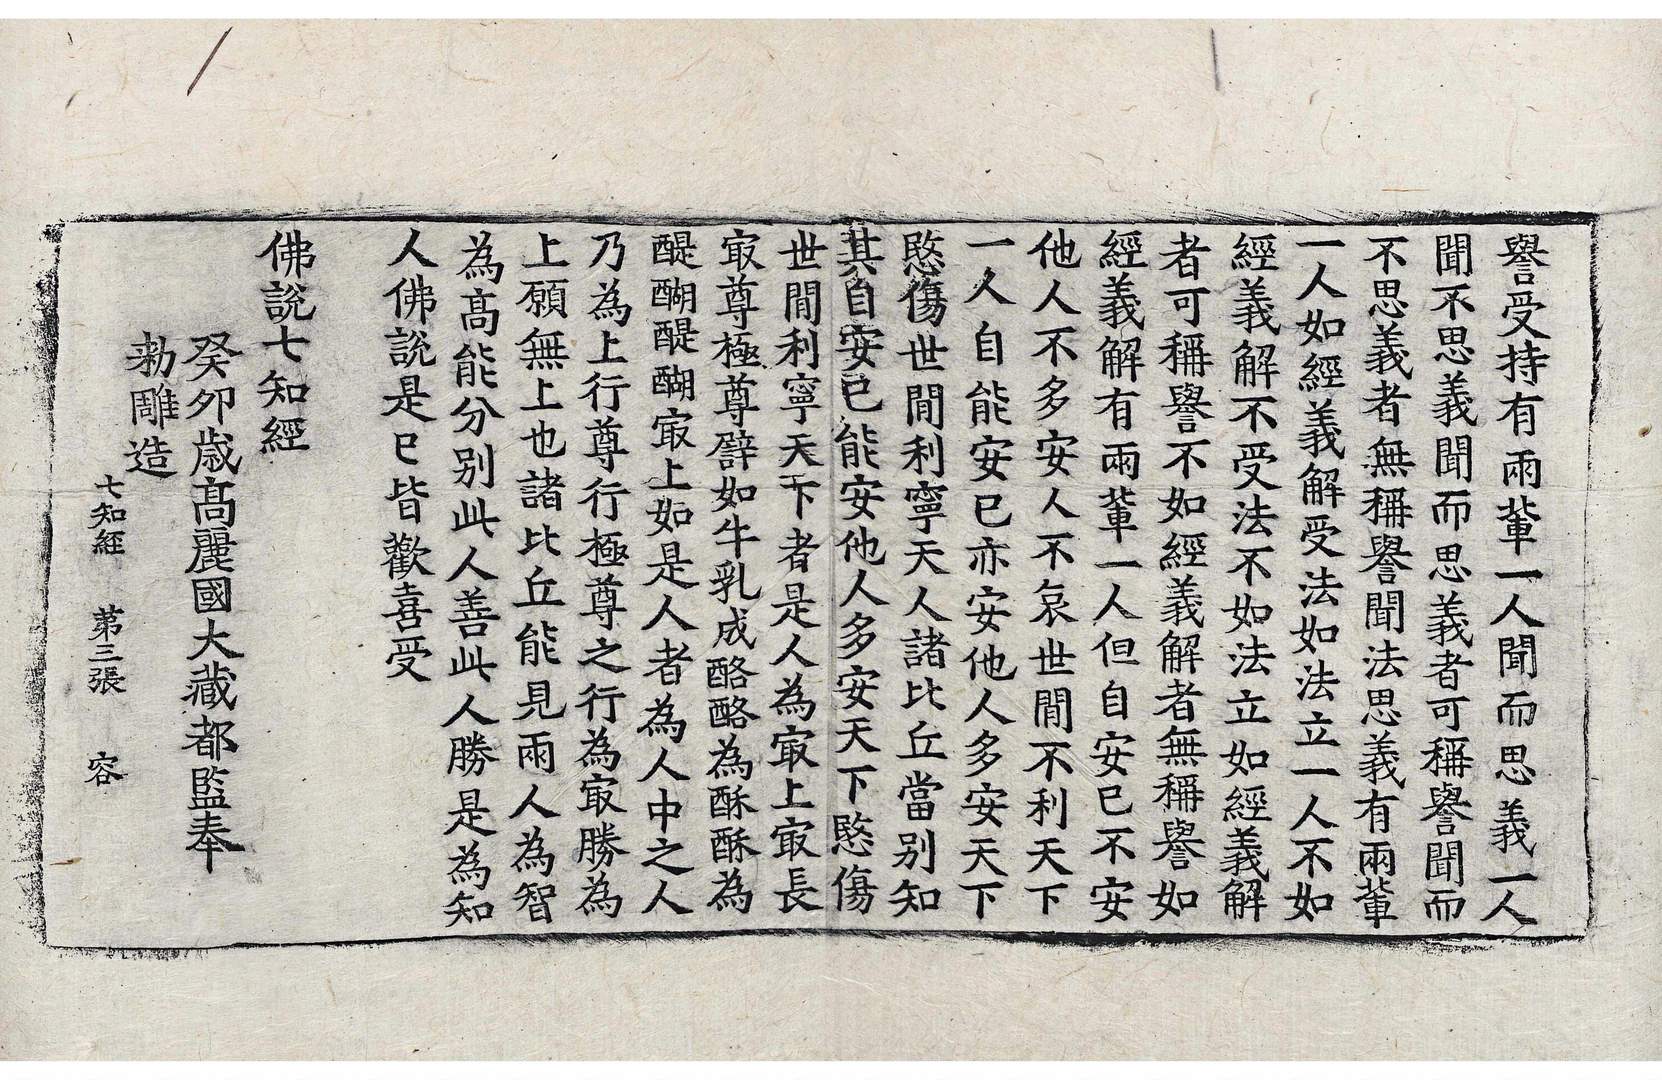 譽受持有兩輩一人聞而思義一人
聞不思義聞而思義者可稱譽聞而
不思義者無稱譽聞法思義有兩輩
一人如經義解受法如法立一人不如
經義解不受法不如法立如經義解
者可稱譽不如經義解者無稱譽如
經義解有兩輩一人但自安已不安
他人不多安人不哀世間不利天下
一人自能安已亦安他人多安天下
愍傷世間利寧天人諸比丘當別知
其自安已能安他人多安天下愍傷
世間利寧天下者是人為㝡上㝡長
㝡尊極尊譬如牛乳成酪酪為酥酥為
醍醐醍醐㝡上如是人者為人中之人
乃為上行尊行極尊之行為㝡勝為
上願無上也諸比丘能見兩人為智
為高能分別此人善此人勝是為知
人佛說是已皆歡喜受
佛說七知經
癸卯歲高麗國大藏都監奉
勅雕造
七知經 第三張 容